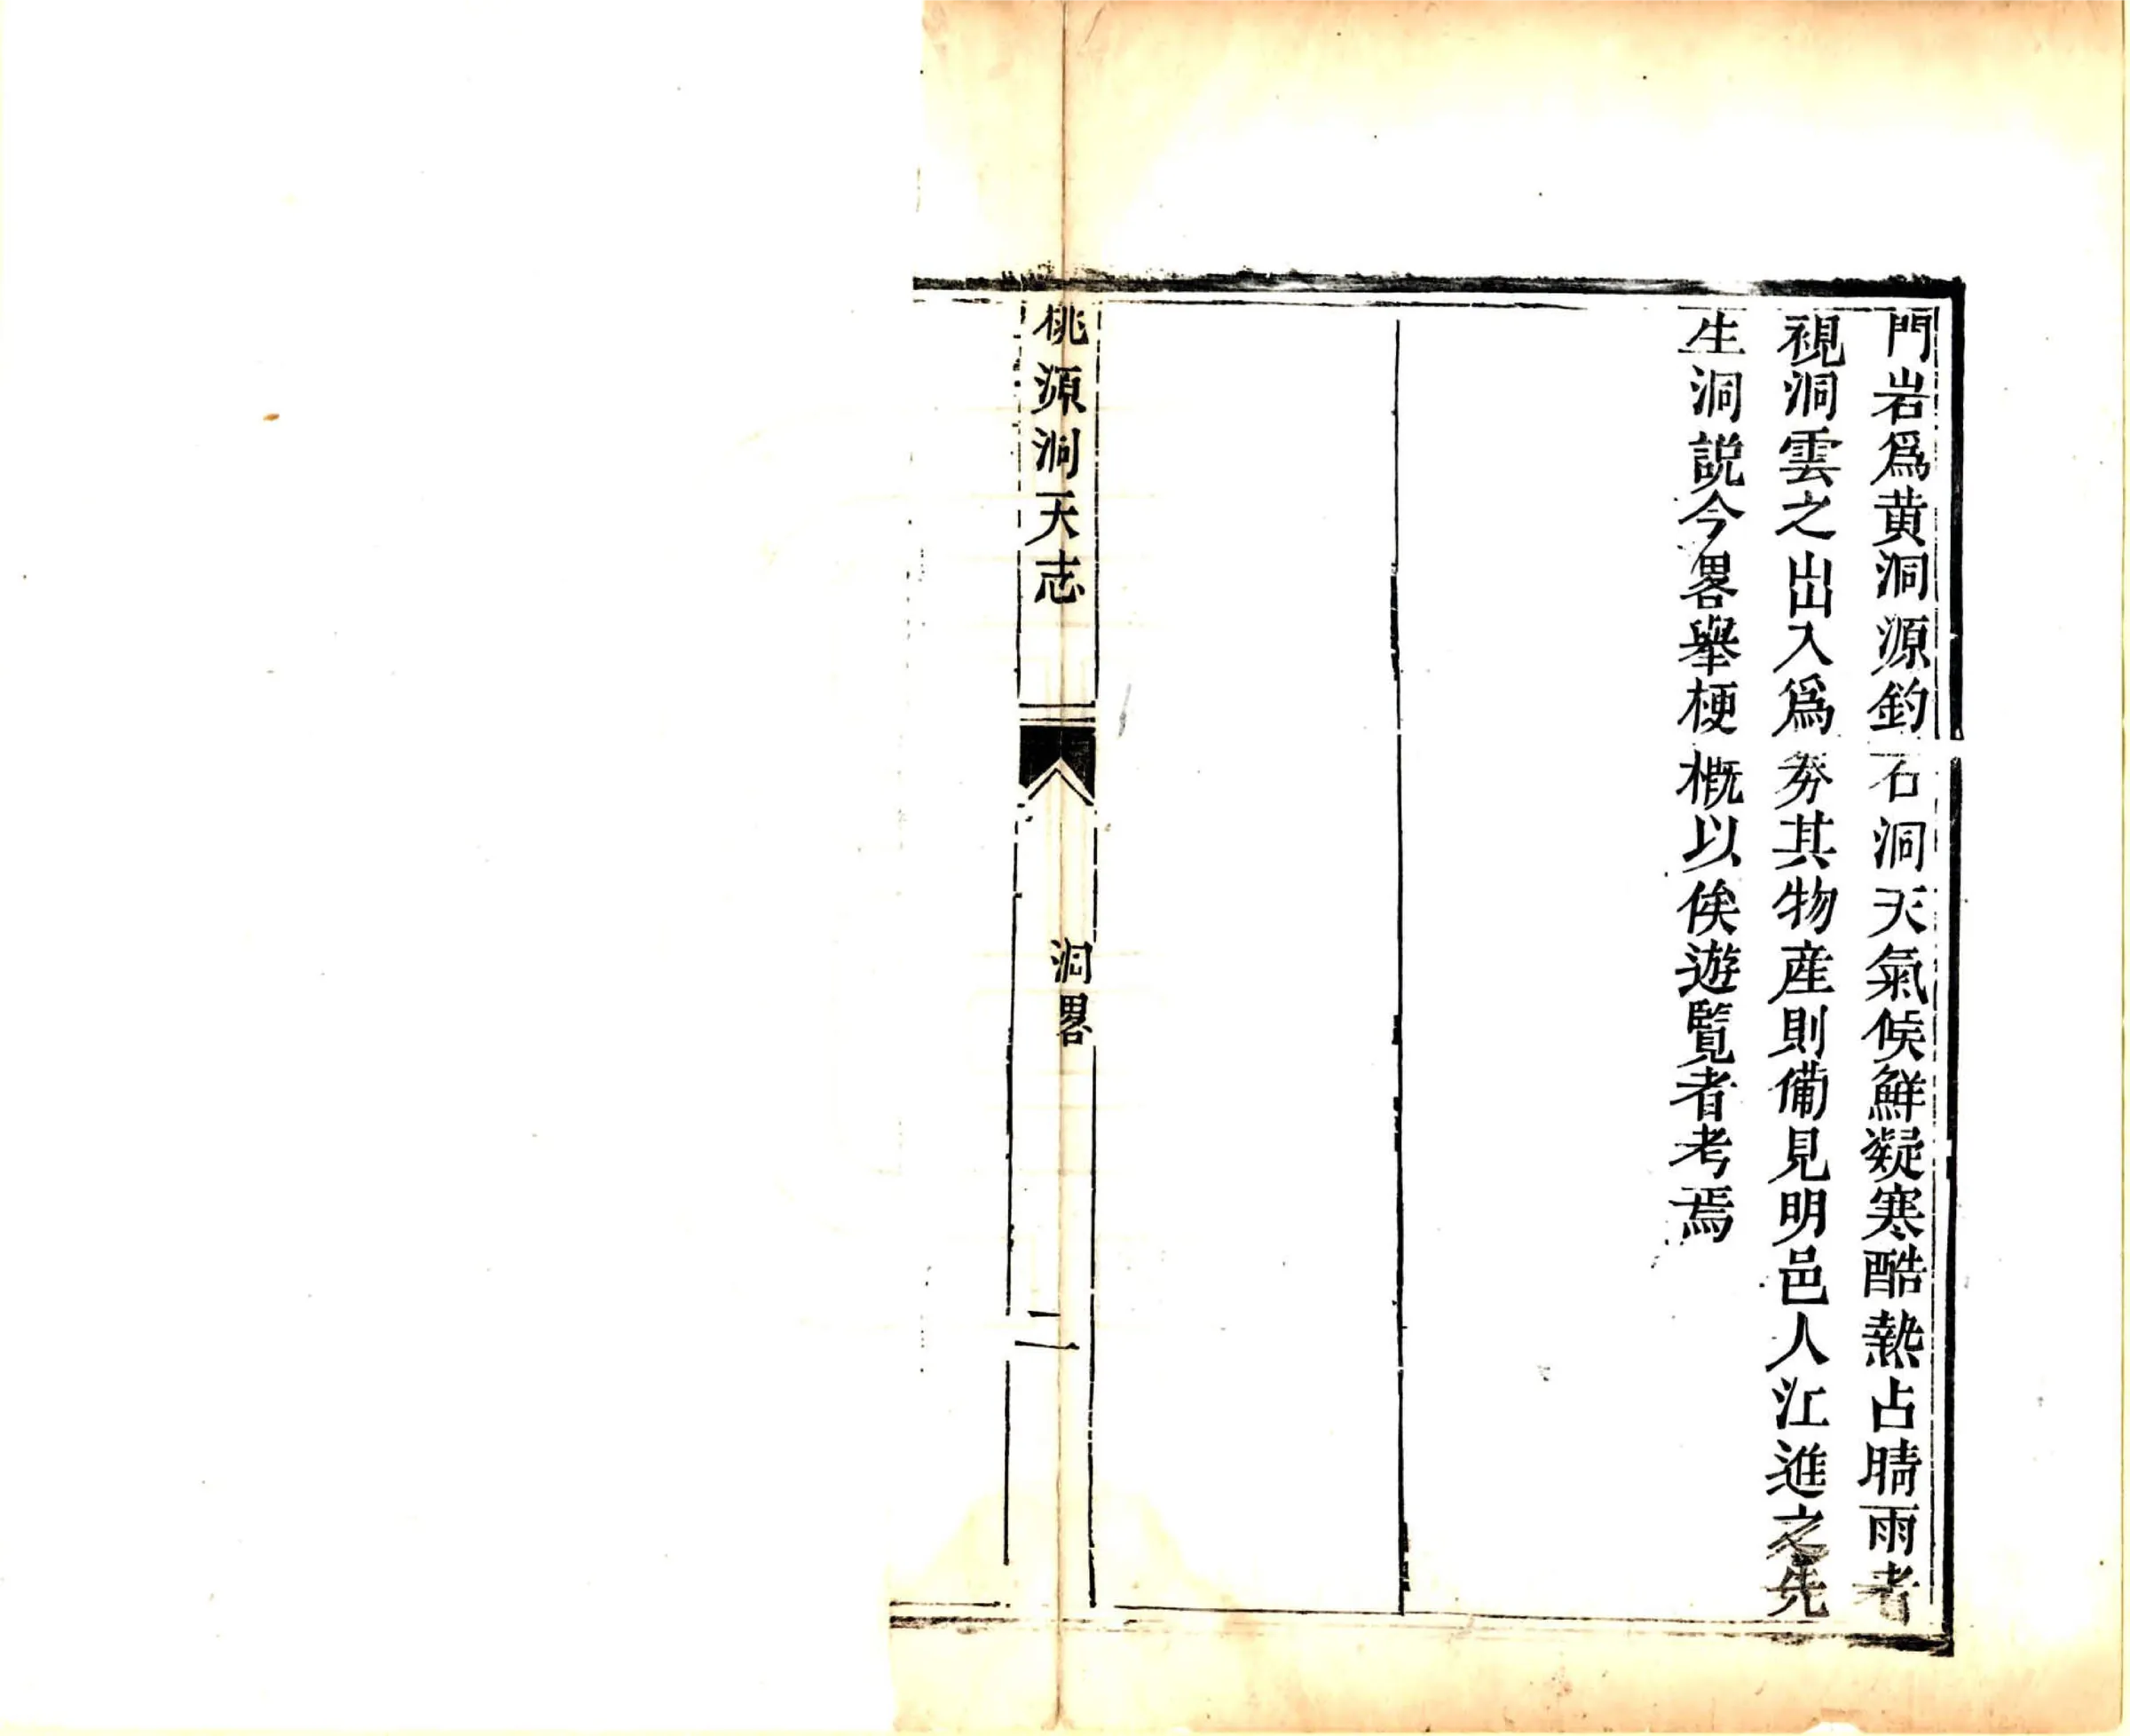 門岩爲黄洞源釣石洞天氣候鮮凝寒酷熱占晴雨者
視洞雲之出入爲劵其物産則備見明邑人江進之先
生洞説今畧舉梗概以俟遊覽者考焉
桃源洞天志
洞畧
二